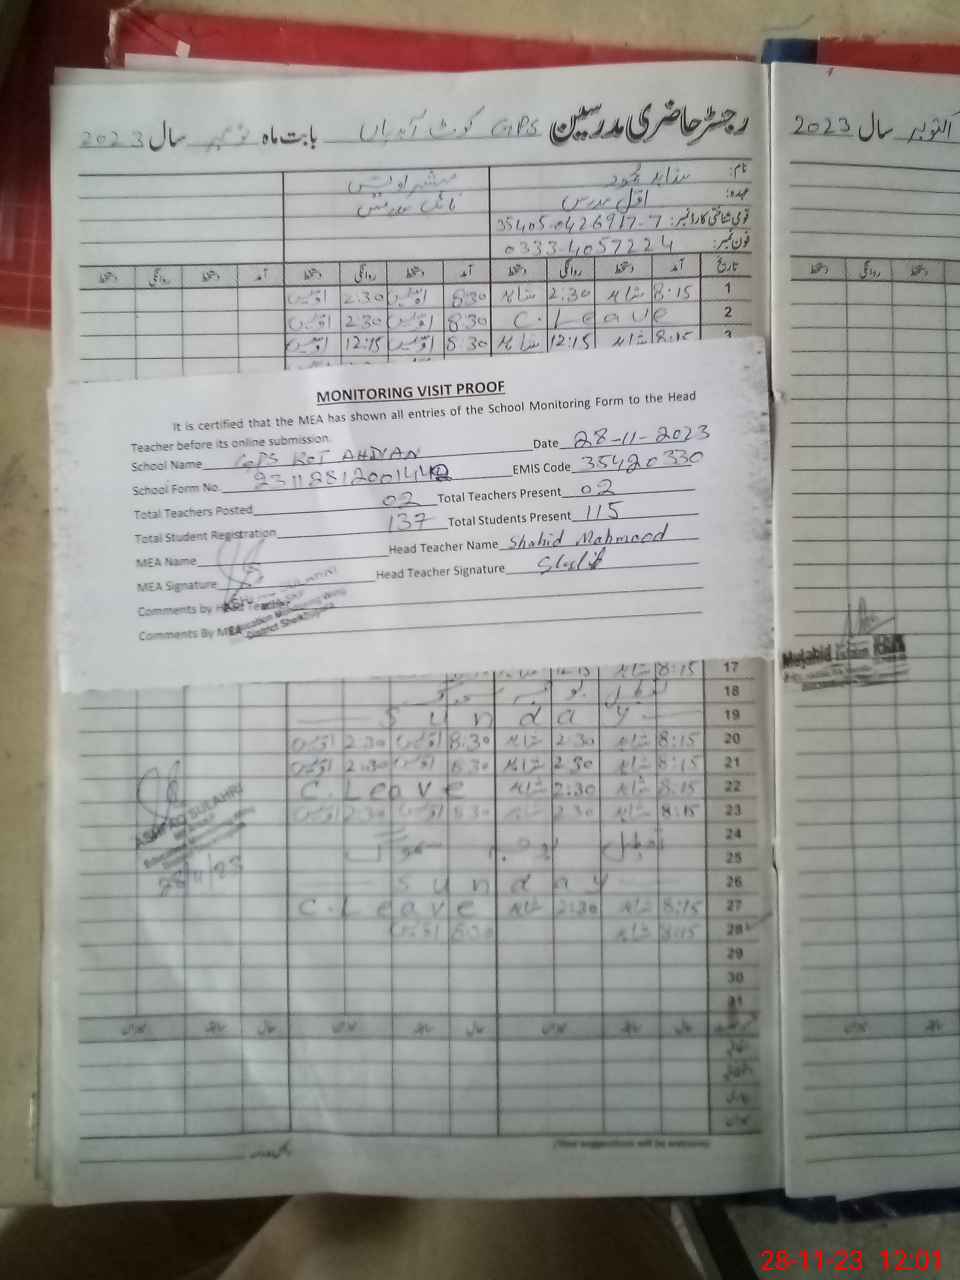 رجسٹر حاضری مدرسین GPS کوٹ آہدیاں بابت ماہ نومبر سال 2023
اکتوبر سال 2023
نام: شاہد محمود مبشر اویس
عہدہ: اول مدرس نائب مدرس
قومی شناختی کارڈ نمبر: 35405-0426917-7
فون نمبر: 0333-4057224
تاریخ آمد دستخط روانگی دستخط آمد دستخط روانگی دستخط آمد دستخط روانگی دستخط
1 8:15 شاہد 2:30 شاہد 8:30 اویس 2:30 اویس
2 C.Leave 8:30 اویس 2:30 اویس
3 8:15 شاہد 12:15 شاہد 8:30 اویس 12:15 اویس
MONITORING VISIT PROOF
It is certified that the MEA has shown all entries of the School Monitoring Form to the Head
Teacher before its online submission.
School Name GPS KOT AHDIAN Date 28-11-2023
School Form No. EMIS Code 35420330
Total Teachers Posted 02 Total Teachers Present 02
Total Student Registration 137 Total Students Present 115
MEA Name Head Teacher Name Shahid Mahmood
MEA Signature Head Teacher Signature Shahid
Comments by Head Teacher
Comments By MEA
Education Monitoring Wing
District Sheikhupura
Mujahid
17 8:15 شاہد 12:15
18 تعطیل
19 Sunday
20 8:15 شاہد 2:30 شاہد 8:30 اویس 2:30 اویس
21 8:15 شاہد 2:30 شاہد 8:30 اویس 2:30 اویس
22 8:15 شاہد 2:30 شاہد C.Leave
23 8:15 شاہد 2:30 شاہد 8:30 اویس 2:30 اویس
24
25 تعطیل
26 Sunday
27 8:15 شاہد 2:30 شاہد C.Leave
28 8:15 شاہد 8:30 اویس
29
30
31
ASHFAQ SULAHRI
28/11/23
حال سابقہ میزان حال سابقہ میزان حال سابقہ میزان
(Your suggestions will be welcome)
28-11-23 12:01